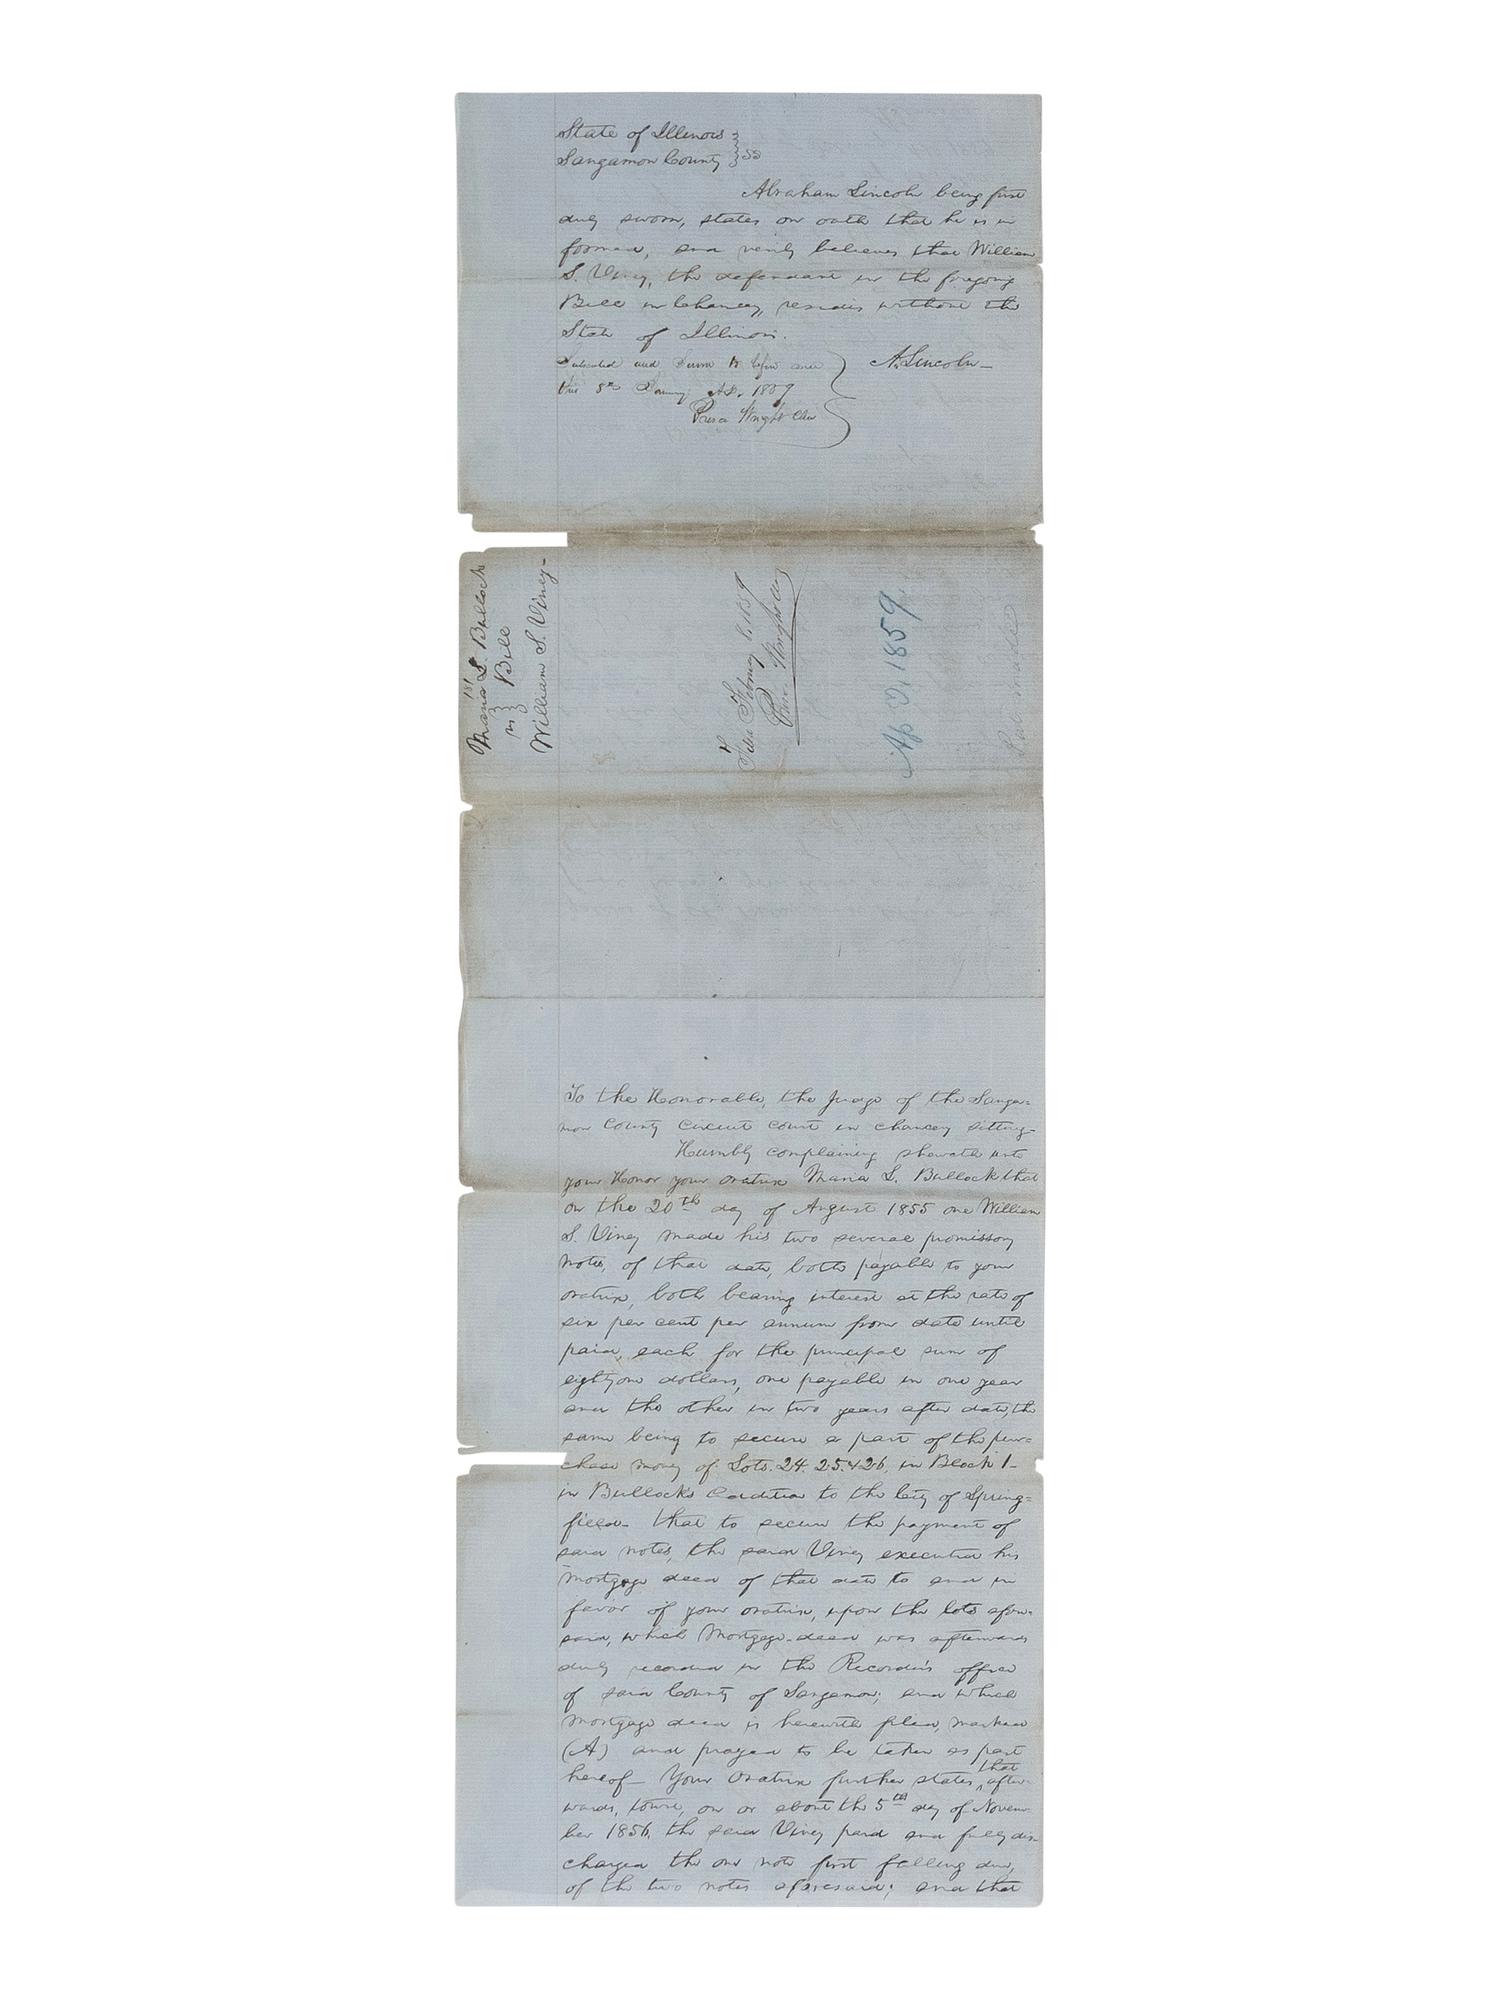 State of Illinois }
Sangamon County } SS
Abraham Lincoln being first
duly sworn, states on oath that he is in
formed, and verily believes that William
S. Viney, the defendant in the foregoing
Bill in Chancery, resides without the
State of Illinois.
A. Lincoln
Subscribed and Sworn to before me
this 8th January AD. 1859
Presco Wright Clerk
181
Maria L. Bullock
vs } Bill
William S. Viney-
Filed February 8. 1859
Presco Wright Clk
1859
To the Honorable, the Judge of the Sanga=
mon County Circuit Court in chancery sitting-
Humbly complaining sheweth unto
your Honor your oratrix Maria L. Bullock that
on the 20th day of August 1855 one William
S. Viney made his two several promissory
notes, of that date, both payable to your
oratrix, both bearing interest at the rate of
six per cent per annum from date until
paid, each for the principal sum of
eighty one dollars, one payable in one year
and the other in two years after date, the
same being to secure a part of the pur=
chase money of Lots. 24. 25. & 26. in Block 1-
in Bullock's addition to the City of Spring=
field- that to secure the payment of
said notes, the said Viney executed his
Mortgage deed of that date to and in
favor of your oratrix, upon the lots afore-
said, which Mortgage-deed was afterwards
duly recorded in the Recorder's office
of said County of Sangamon; and which
Mortgage deed is herewith filed, marked
(A) and prayed to be taken as part
hereof- Your Oratrix further states, that after-
wards, towit, on or about the 5th day of Novem-
ber 1856, the said Viney paid and fully dis-
charged the one note first falling due,
of the two notes aforesaid; and that